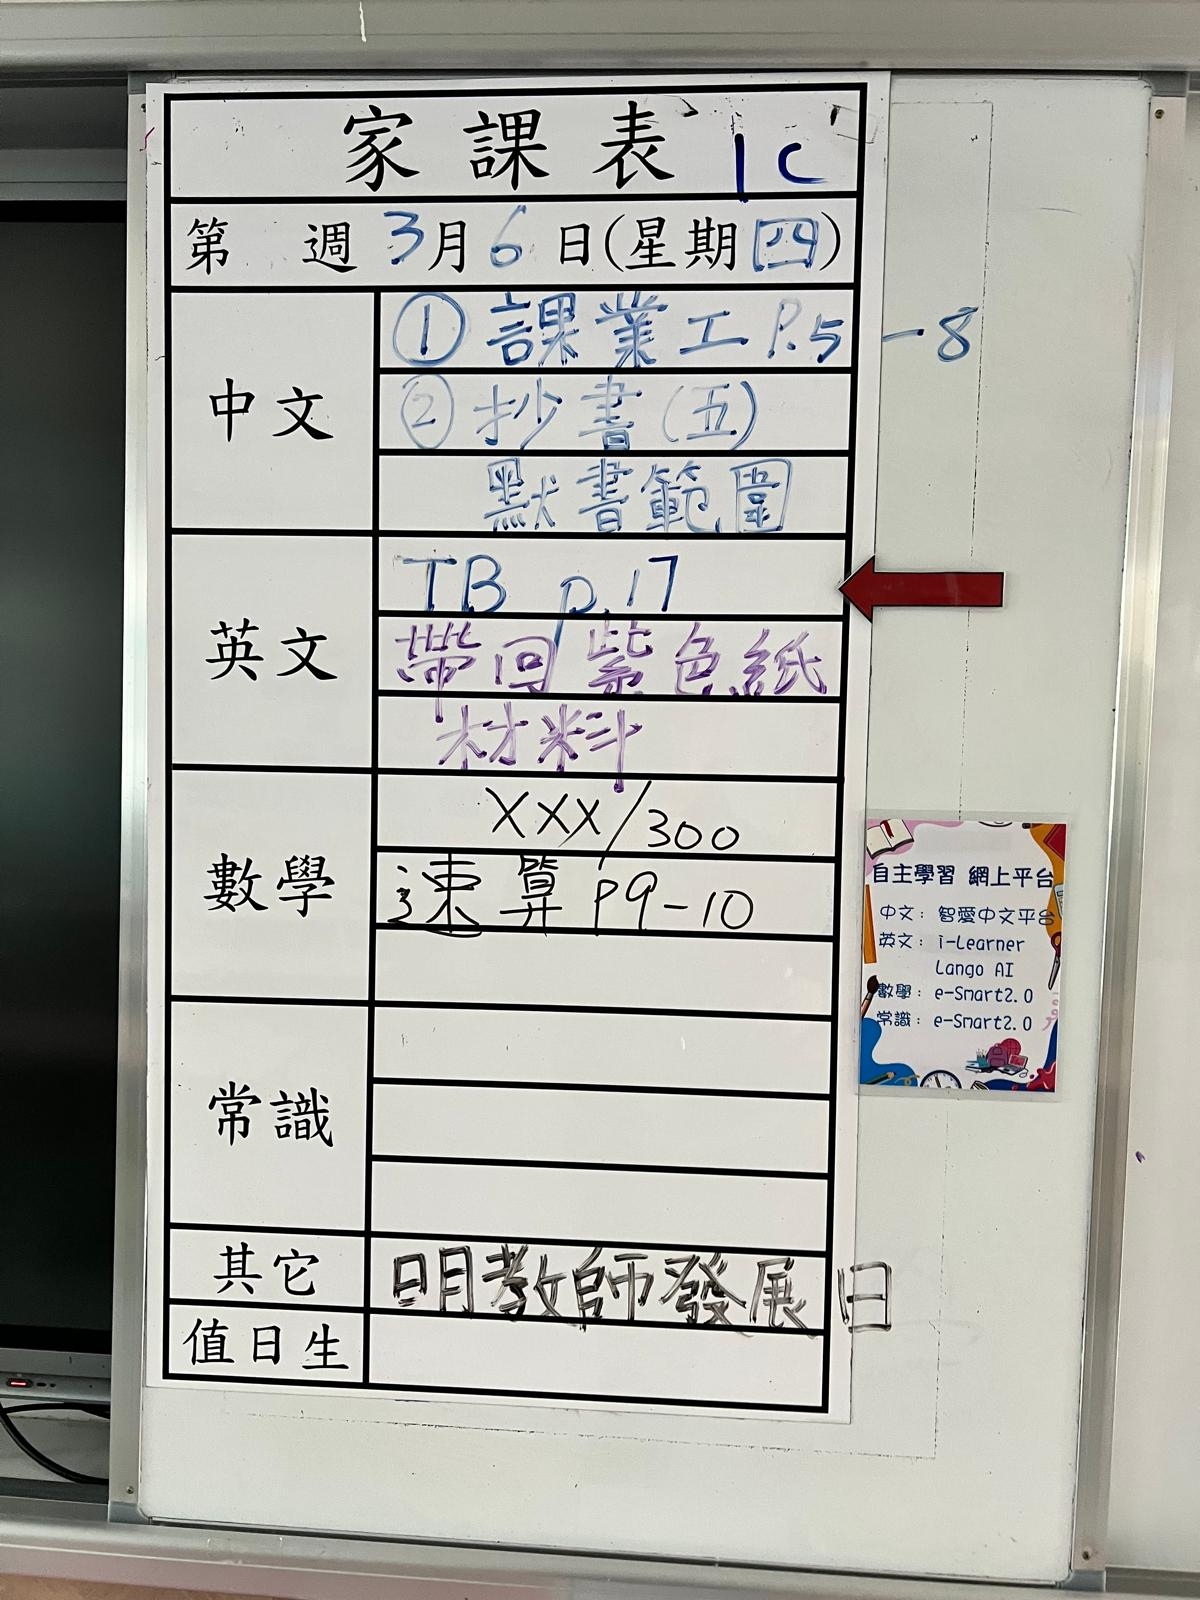 家課表 1C
第 週 3月6日(星期四)
中文
① 課業工 P.5-8
② 抄書(五)
默書範圍
英文
TB p.17
帶回紫色紙
材料
數學
XXX/300
速算 P9-10
常識
其它
明教師發展日
值日生
自主學習 網上平台
中文: 智愛中文平台
英文: i-Learner
Lango AI
數學: e-Smart2.0
常識: e-Smart2.0